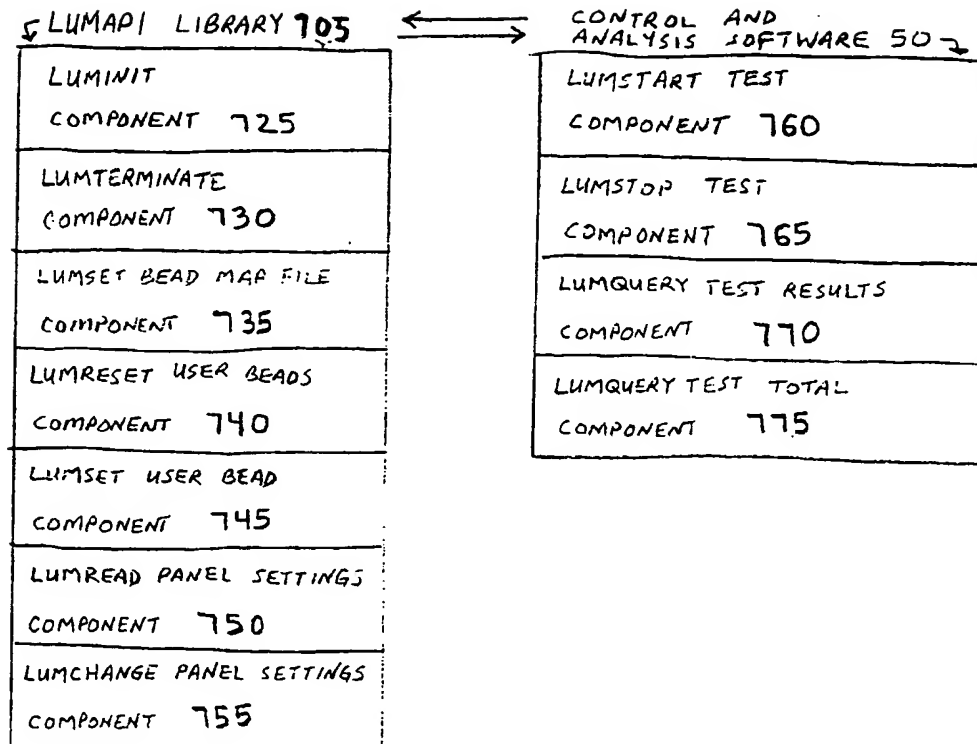 LUMAPI LIBRARY 705
LUMINIT
COMPONENT 725
LUMTERMINATE
COMPONENT 730
LUMSET BEAD MAP FILE
COMPONENT 735
LUMRESET USER BEADS
COMPONENT 740
LUMSET USER BEAD
COMPONENT 745
LUMREAD PANEL SETTINGS
COMPONENT 750
LUMCHANGE PANEL SETTINGS
COMPONENT 755
CONTROL AND
ANALYSIS SOFTWARE 50
LUMSTART TEST
COMPONENT 760
LUMSTOP TEST
COMPONENT 765
LUMQUERY TEST RESULTS
COMPONENT 770
LUMQUERY TEST TOTAL
COMPONENT 775